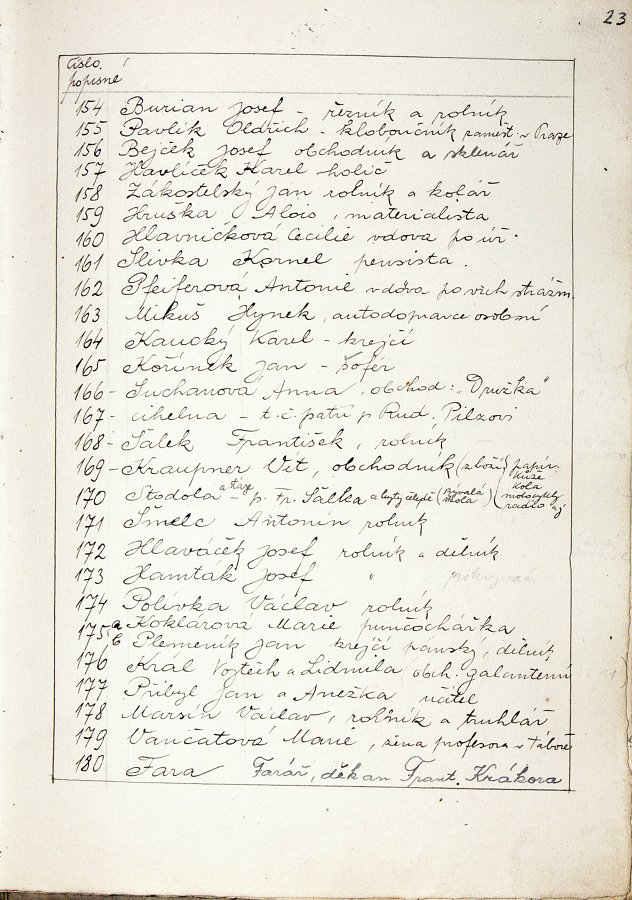 23
Číslo
popisné
154 Burian Josef – řezník a rolník
155 Pavlík Oldřich – kloboučník zaměst. v Praze
156 Bejček Josef obchodník a sklenář
157 Havlíček Karel holič
158 Zákostelský Jan rolník a kolář
159 Hruška Alois, materialista
160 Hlavničková Cecilie vdova po úř.
161 Slivka Kornel pensista.
162 Pfeiferová Antonie vdova po vrch. strážm.
163 Mikuš Hynek, autodopravce osobní
164 Kaucký Karel – krejčí
165 Kořínek Jan – šofér
166 – Suchanová Anna, obchod: „Družka"
167 – cihelna – t. č. patří p. Rud. Pilzovi
168 – Šálek František, rolník
169 – Kraupner Vít, obchodník (zboží) papír. kůže kola motocykly radio aj
170 Stodola a stáje – p. Fr. Šálka a byty čelédě (bývalá škola)
171 Šmelc Antonín rolník
172 Hlaváček Josef rolník a dělník
173 Hamták Josef " pokrývač
174 Polívka Václav rolník
175 a Koklárová Marie punčochářka
b Plemeník Jan krejčí pánský, dělník
176 Král Vojtěch a Lidmila obch. galanterní
177 Přibyl Jan a Anežka učitel
178 Maršin Václav, rolník a truhlář
179 Vančatová Marie, žena profesora v Táboře
180 Fara Farář, děkan Frant. Krákora